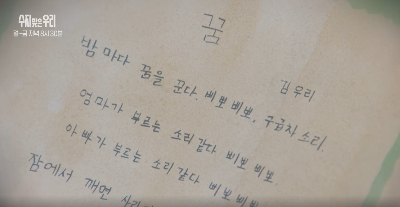 수지맞은 우리
꿈
김우리
밤마다 꿈을 꾼다. 삐뽀삐뽀, 구급차 소리.
엄마가 부르는 소리같다 삐뽀 삐뽀
아빠가 부르는 소리같다 삐뽀삐뽀
잠에서 깨면